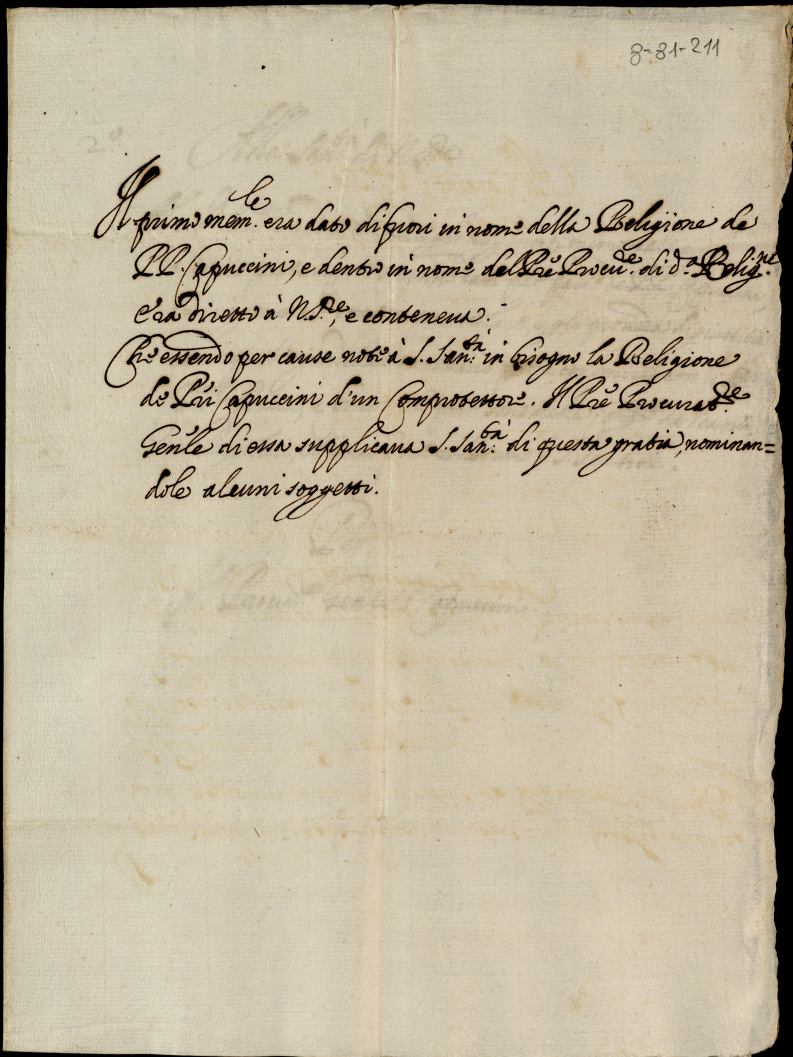 8-81-211
Il primo mem.le era dato di fuori in nome della Religione de
PP. Capuccini, e dentro in nome del Prē Procu.re di d.a Relig.ne
Era diretto à N. S.re, e conteneua.
Che essendo per cause note à S. San.tà in bisogno la Religione
de Prī Capuccini d'un Comprotettore. Il Prē Procurat.re
Gen'le di essa supplicaua S. San.tà di questa gratia, nominan=
dole alcuni soggetti.